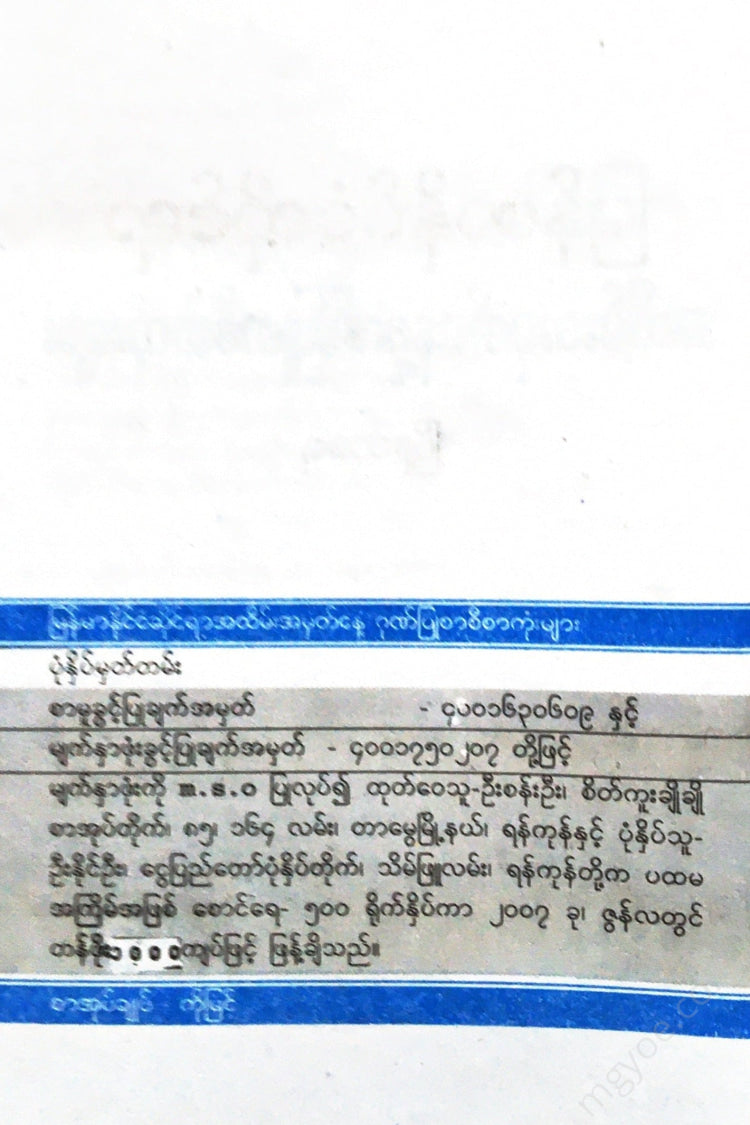 မြန်မာနိုင်ငံဆိုင်ရာအထိမ်းအမှတ်နေ့ ဂုဏ်ပြုစာစီစာကုံးများ
ပုံနှိပ်မှတ်တမ်း
စာမူခွင့်ပြုချက်အမှတ် - ၄၀၀၁၆၃၀၆၀၉ နှင့်
မျက်နှာဖုံးခွင့်ပြုချက်အမှတ် - ၄၀၀၁၇၅၀၂၀၇ တို့ဖြင့်
မျက်နှာဖုံးကို m.s.o ပြုလုပ်၍ ထုတ်ဝေသူ-ဦးစန်းဦး၊ စိတ်ကူးချိုချို
စာအုပ်တိုက်၊ ၈၅၊ ၁၆၄ လမ်း၊ တာမွေမြို့နယ်၊ ရန်ကုန်နှင့် ပုံနှိပ်သူ-
ဦးနိုင်ဦး၊ ငွေပြည်တော်ပုံနှိပ်တိုက်၊ သိမ်ဖြူလမ်း၊ ရန်ကုန်တို့က ပထမ
အကြိမ်အဖြစ် စောင်ရေ- ၅၀၀ ရိုက်နှိပ်ကာ ၂၀၀၇ ခု၊ ဇွန်လတွင်
တန်ဖိုး ကျပ်ဖြင့် ဖြန့်ချိသည်။
စာအုပ်ချုပ် - ကိုမြင့်
mgyoe.co